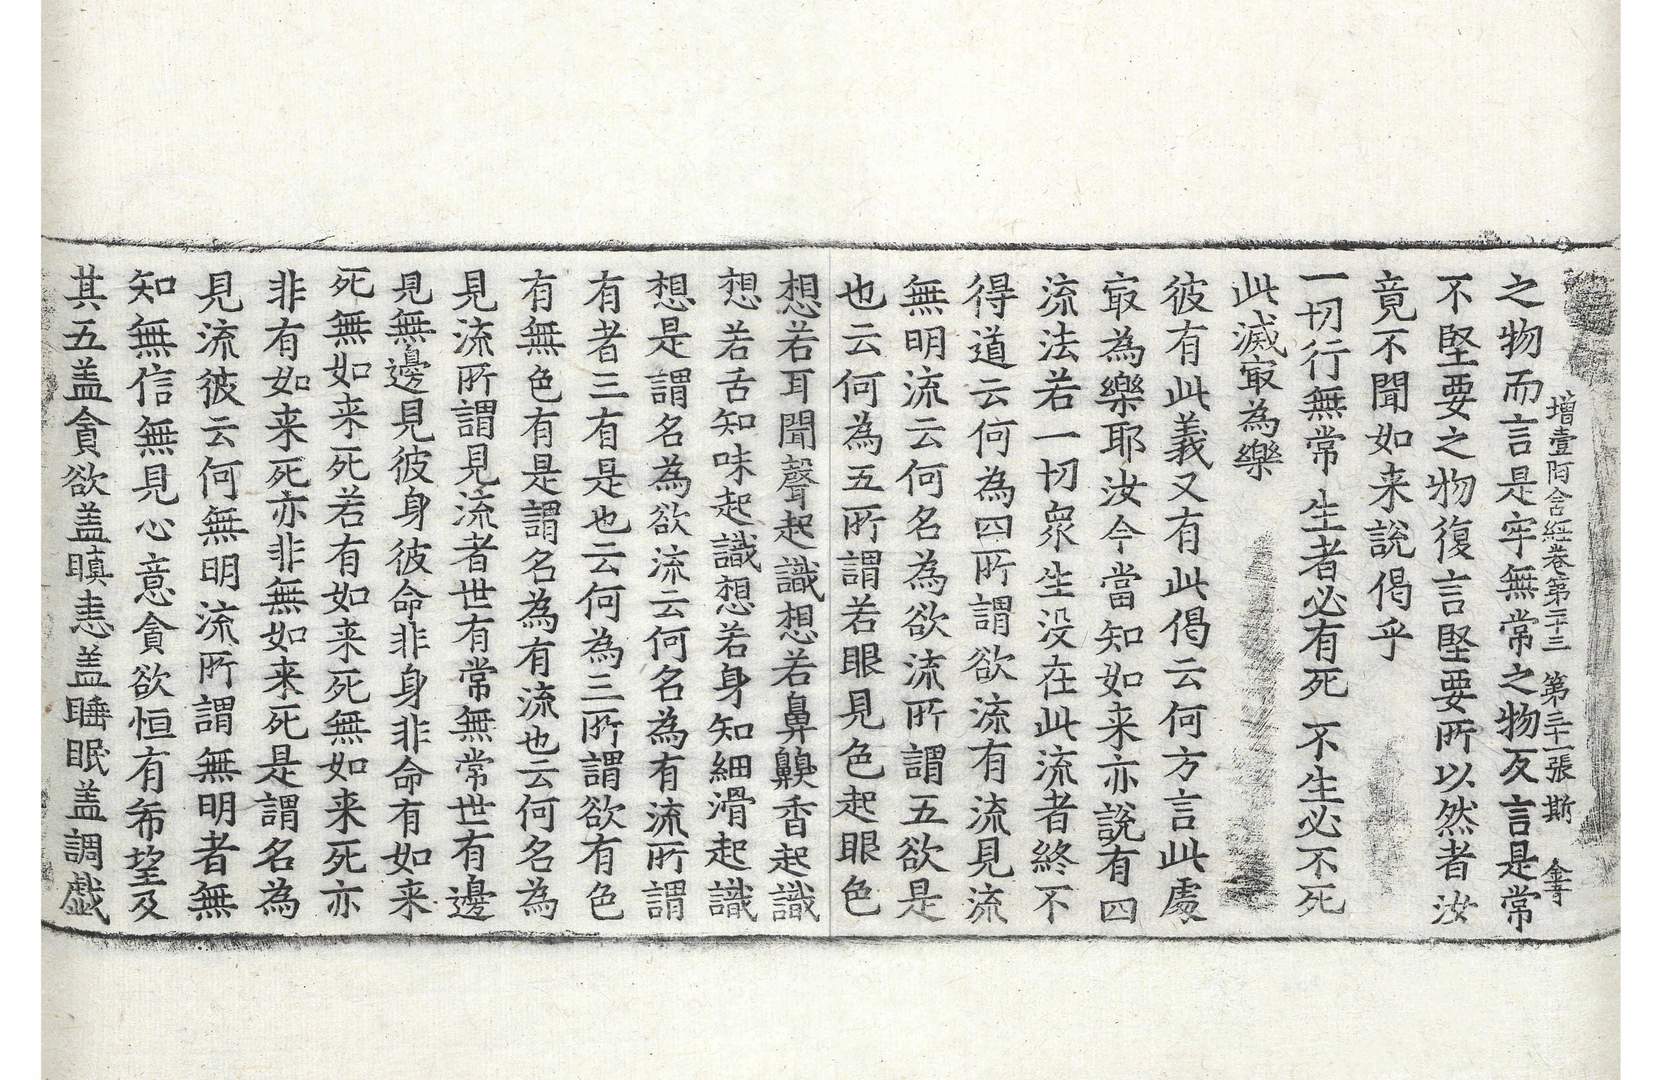 增壹阿含經卷第二十三 第三十一張 斯
之物而言是牢無常之物反言是常
不堅要之物復言堅要所以然者汝
竟不聞如来說偈乎
一切行無常 生者必有死 不生必不死
此滅㝡為樂
彼有此義又有此偈云何方言此處
㝡為樂耶汝今當知如来亦說有四
流法若一切眾生没在此流者終不
得道云何為四所謂欲流有流見流
無明流云何名為欲流所謂五欲是
也云何為五所謂若眼見色起眼色
想若耳聞聲起識想若鼻齅香起識
想若舌知味起識想若身知細滑起識
想是謂名為欲流云何名為有流所謂
有者三有是也云何為三所謂欲有色
有無色有是謂名為有流也云何名為
見流所謂見流者世有常無常世有邊
見無邊見彼身彼命非身非命有如来
死無如来死若有如来死無如来死亦
非有如来死亦非無如来死是謂名為
見流彼云何無明流所謂無明者無
知無信無見心意貪欲恒有希望及
其五盖貪欲盖瞋恚盖睡眠盖調戯